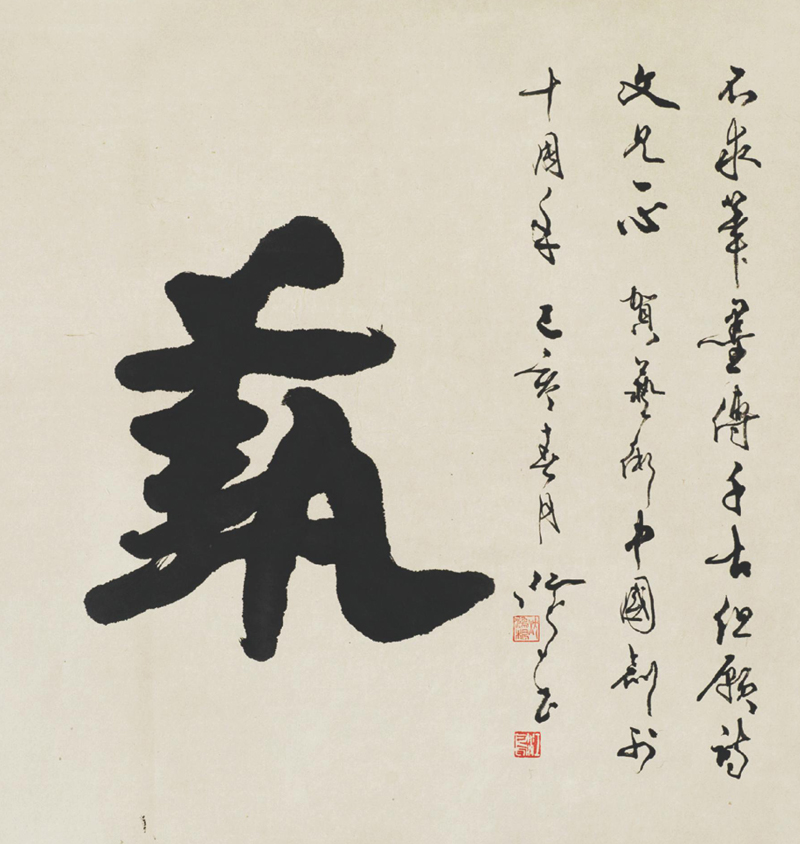 不求筆墨傳千古但願詩
文見一心 賀藝術中國創刊
十周年 己亥春月
藝